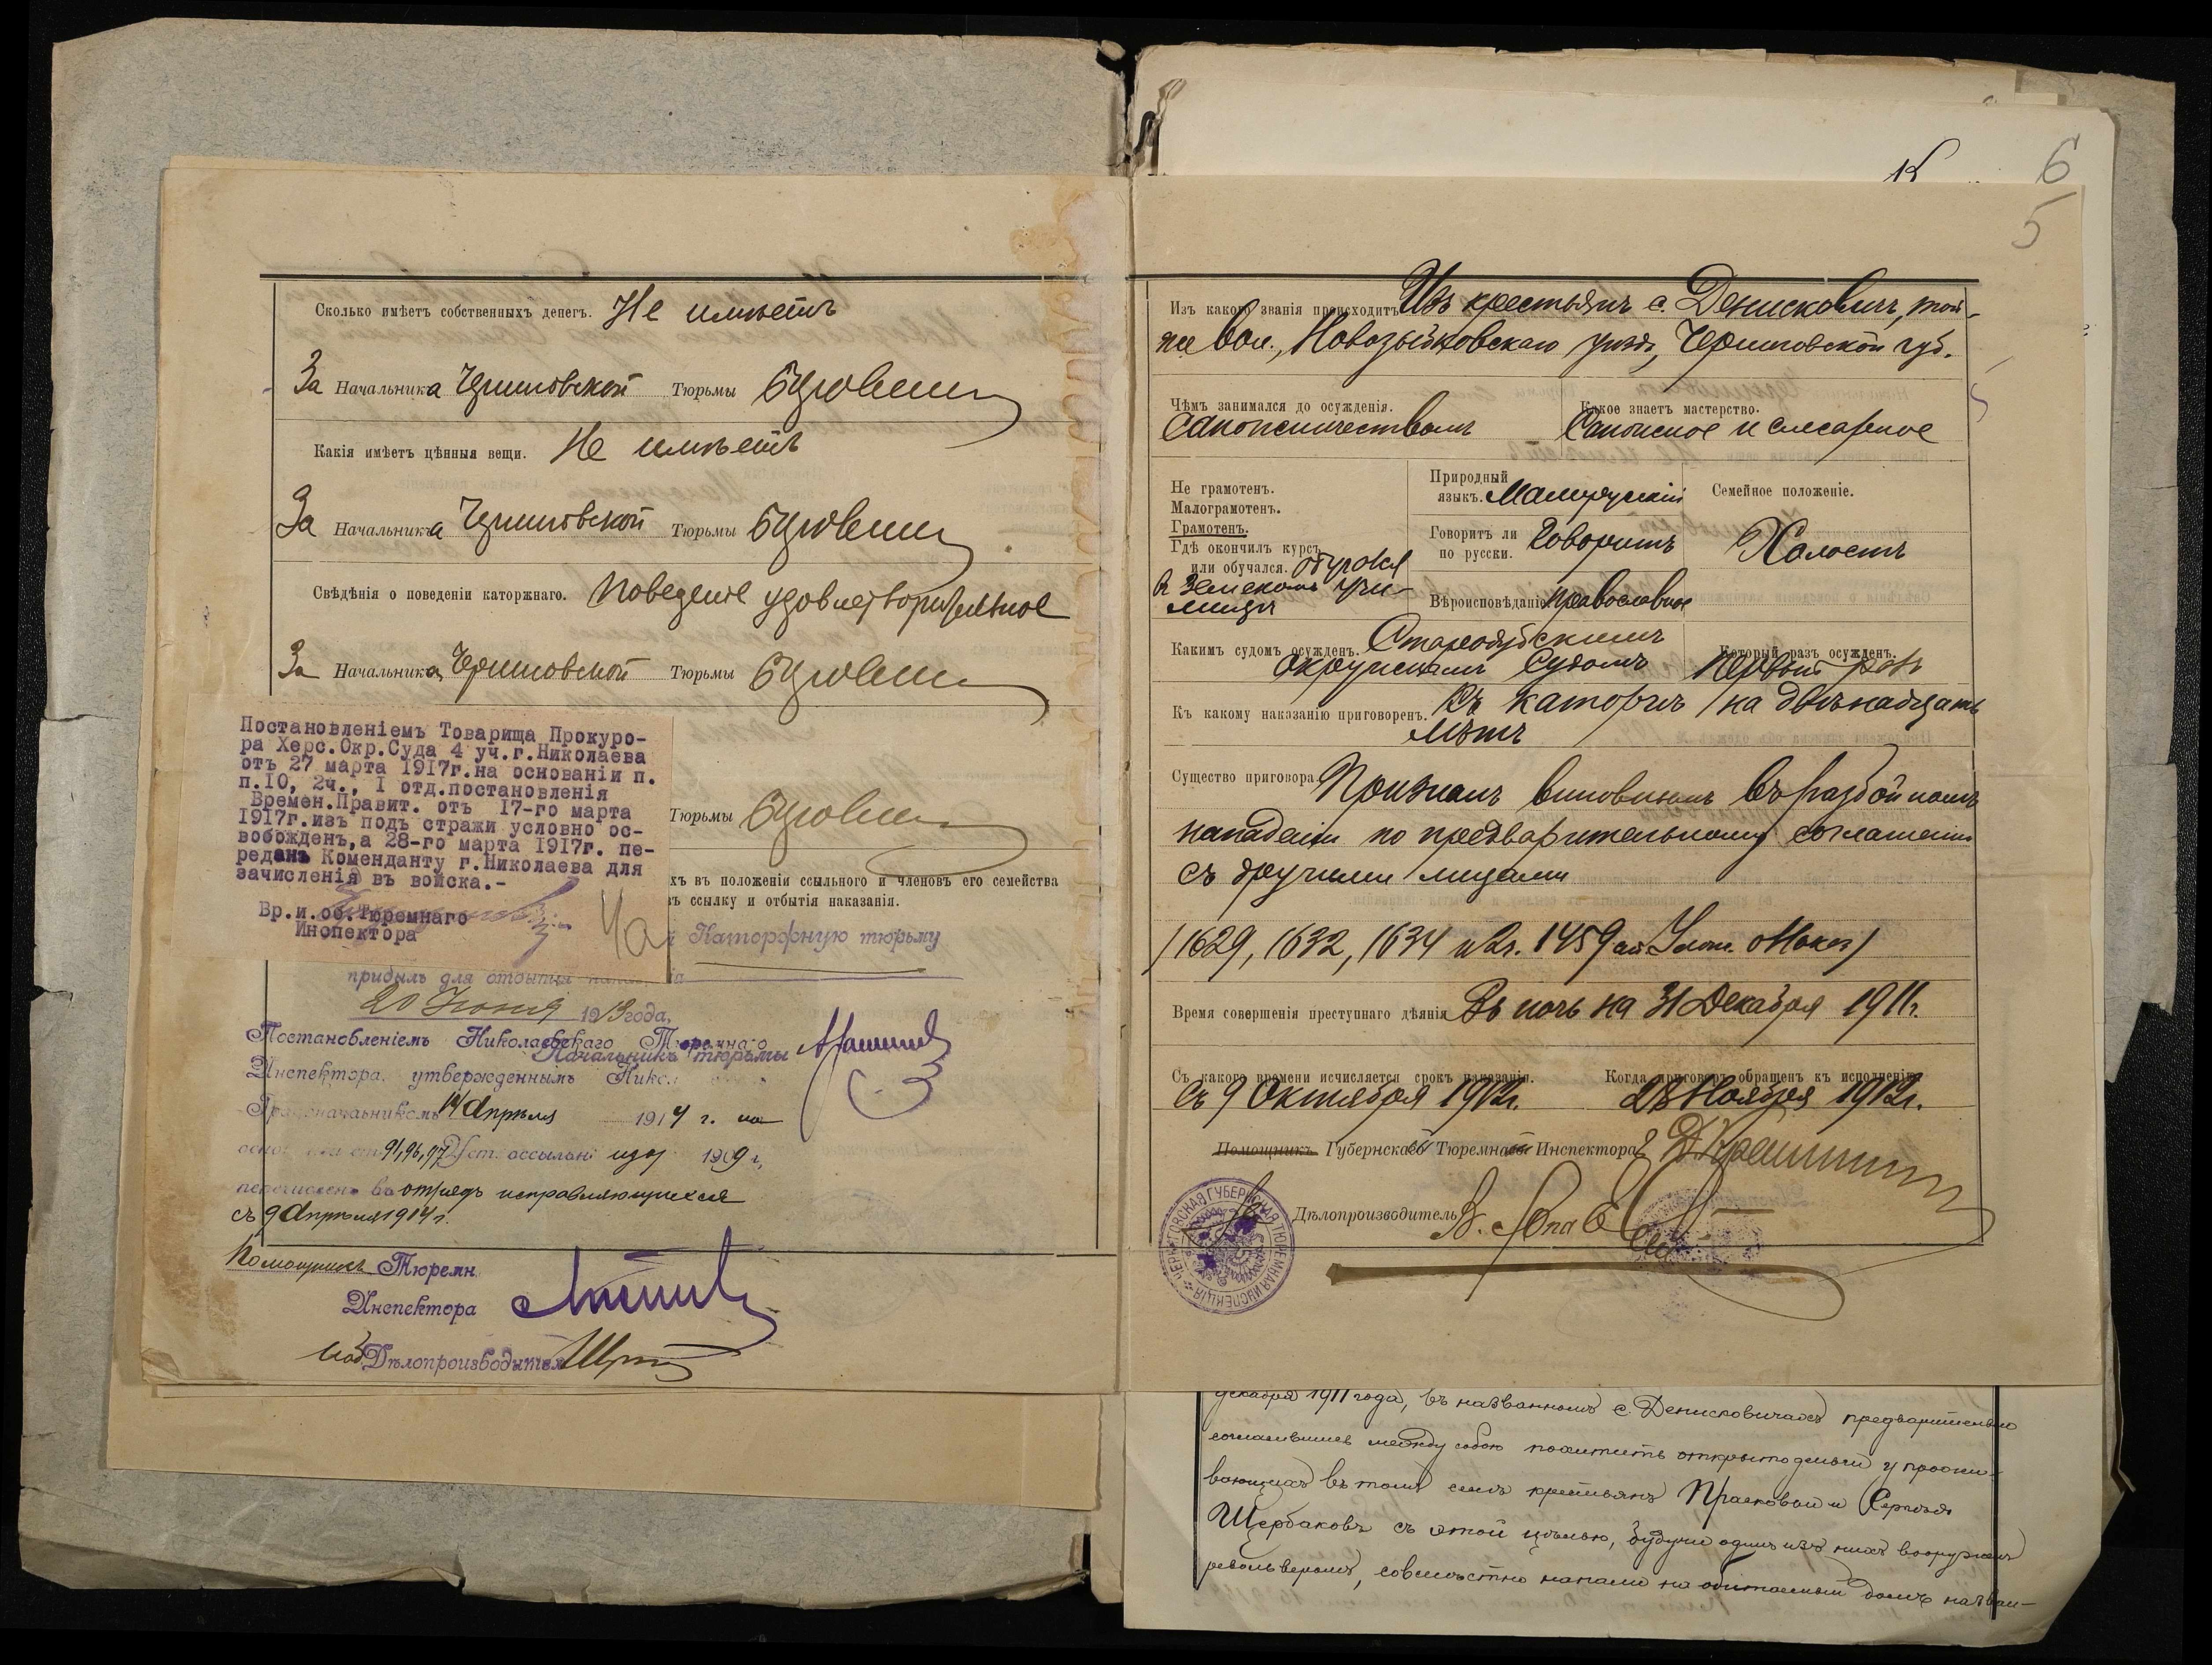 Сколько имѣетъ собственныхъ денегъ. Не имѣетъ
За Начальника Черниговской Тюрьмы
Какія имѣетъ цѣнныя вещи. Не имѣетъ
За Начальника Черниговской Тюрьмы
Свѣдѣнія о поведеніи каторжнаго. Поведенія удовлетворительное
За Начальника Черниговской Тюрьмы
Постановленіемъ Товарища Прокуро-
ра Херс.Окр.Суда 4 уч.г.Николаева
отъ 27 марта 1917г.на основаніи п.
п.10, 2ч., I отд.постановленія
Времен.Правит. отъ 17-го марта
1917г.изъ подъ стражи условно ос-
вобожденъ,а 28-го марта 1917г. пе-
реданъ Коменданту г.Николаева для
зачисленія въ войска.-
Вр.и.об.Тюремнаго
Инспектора
4а
Тюрьмы
хъ въ положеніи ссыльного и членовъ его семейства
ъ ссылку и отбытія наказанія.
Каторжную тюрьму
прибылъ для отбытія
20 Іюня 1913 года,
Начальникъ тюрьмы
Постановленіемъ Николаевскаго Тюремнаго
Инспектора, утвержденнымъ Никол
Градоначальникомъ 14 Апрѣля 1914 г. на
91, 96, 97 Уст. о ссыльн. изд. 1909 г.,
перечисленъ въ отрядъ исправляющихся
съ 9 Апрѣля 1914 г.
Помощникъ Тюремн.
Инспектора
Дѣлопроизводитель
6
5
Изъ какого званія происходитъ Изъ крестьянъ с. Денисковичъ, той-
же вол., Новозыбковскаго уѣзда, Черниговской губ.
Чѣмъ занимался до осужденія. Сапожничествомъ
Какое знаетъ мастерство. Сапожное и слесарное
Не грамотенъ.
Малограмотенъ.
Грамотенъ.
Гдѣ окончилъ курсъ
или обучался. обучался
въ Земскомъ учи-
лищѣ
Природный
языкъ. Малорусскій
Говоритъ ли
по русски. Говоритъ
Вѣроисповѣданіе. православное
Семейное положеніе.
Холостъ
Какимъ судомъ осужденъ. Стародубскимъ
Окружнымъ Судомъ
Который разъ осужденъ.
Первый разъ
Къ какому наказанію приговоренъ. Въ каторгу на двѣнадцать
лѣтъ
Существо приговора. Признанъ виновнымъ въ разбойномъ
нападеніи по предварительному соглашенію
съ другими лицами
/1629, 1632, 1634 и 2ч. 1459 ст. Улож. о Наказ/
Время совершенія преступнаго дѣянія Въ ночь на 31 Декабря 1911г.
Съ какого времени исчисляется срокъ наказанія.
Съ 9 Октября 1912г.
Когда приговоръ обращенъ къ исполненію
Ноября 1912г.
Помощникъ Губернскаго Тюремнаго Инспектора
Дѣлопроизводитель
ЧЕРНИГОВСКАЯ ГУБЕРНСКАЯ ТЮРЕМНАЯ ИНСПЕКЦІЯ
декабря 1911 года, въ названномъ с. Денисковичахъ предварительно
согласившись между собою похитить открыто деньги у прожи-
вающихъ въ томъ селѣ крестьянъ Прасковьи и Сергѣя
Щербаковъ съ этой цѣлью, будучи одинъ изъ нихъ вооруженъ
револьверомъ, совмѣстно напали на обитаемый домъ назван-